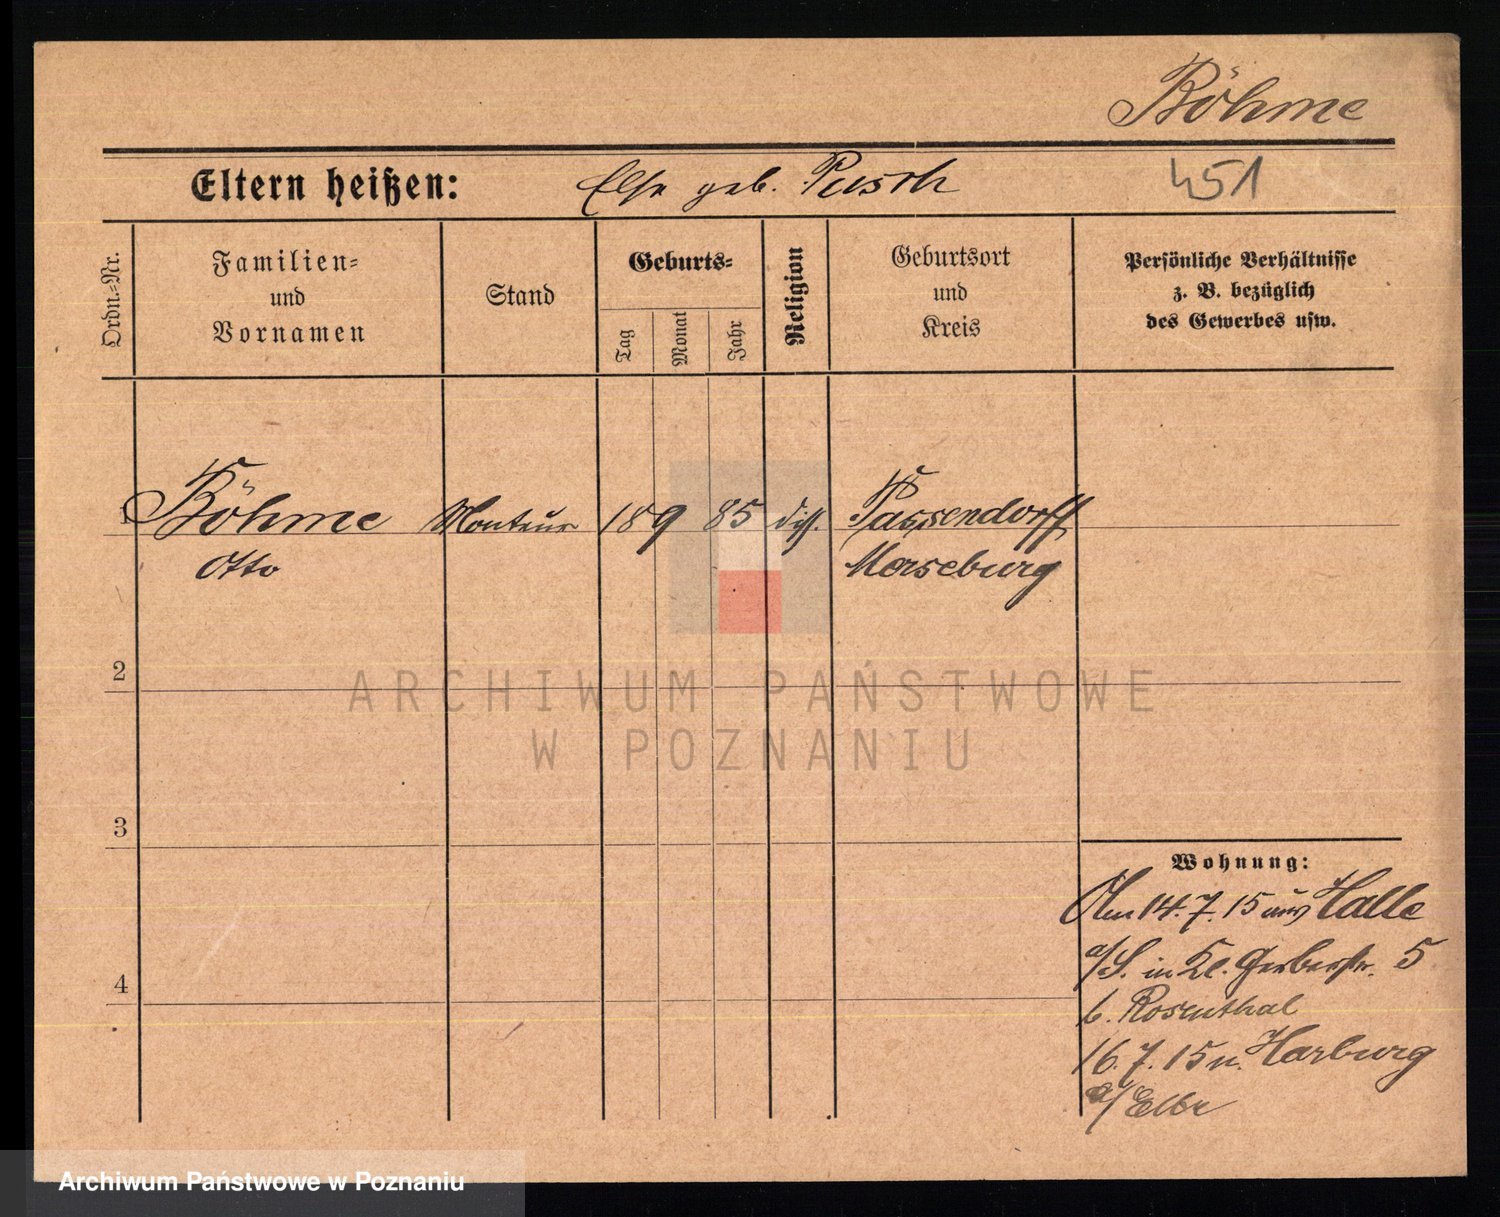 Böhme
Eltern heißen: Else geb. Pusch 451
Ordn.-Nr.
Familien-
und
Vornamen
Stand
Geburts-
Tag
Monat
Jahr
Religion
Geburtsort
und
Kreis
Persönliche Verhältnisse
z. B. bezüglich
des Gewerbes usw.
1 Böhme Monteur 18 9 85 diss. Passendorff
Otto Merseburg
2
ARCHIWUM PAŃSTWOWE
W POZNANIU
3
4
Wohnung:
Am 14.7.15 aus Halle
a/S. in Kl. Gerberstr. 5
b. Rosenthal
16.7.15 n. Harburg
a/Elbe
Archiwum Państwowe w Poznaniu